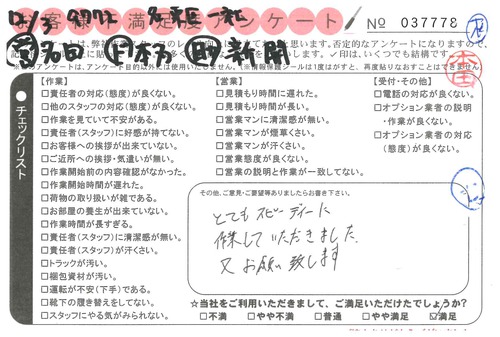 お客様不満足度アンケート
No 037778
チェックリスト
【作業】
□責任者の対応(態度)が良くない。
□他のスタッフの対応(態度)が良くない。
□作業を見ていて不安がある。
□責任者(スタッフ)に好感が持てない。
□お客様への挨拶が出来ていない。
□ご近所への挨拶・気遣いが無い。
□作業開始前の内容確認がなかった。
□作業開始時間が遅れた。
□荷物の取り扱いが雑である。
□お部屋の養生が出来ていない。
□作業時間が長すぎる。
□責任者(スタッフ)に清潔感が無い。
□責任者(スタッフ)が汗くさい。
□トラックが汚い。
□梱包資材が汚い。
□運転が不安(下手)である。
□靴下の履き替えをしてない。
□スタッフにやる気がみられない。
【営業】
□見積もり時間に遅れた。
□見積もり時間が長い。
□営業マンに清潔感が無い。
□営業マンが煙草くさい。
□営業マンが汗くさい。
□営業態度が良くない。
□営業の説明と作業が一致してない。
【受付・その他】
□電話の対応が良くない。
□オプション業者の説明
・作業が良くない。
□オプション業者の対応
(態度)が良くない。
その他、ご意見・ご要望等ありましたらお書き下さい。
とてもスピーディーに
作業していただきました。
又お願い致します
☆当社をご利用いただきまして、ご満足いただけたでしょうか?
□不満 □やや不満 □普通 □やや満足 ☑満足